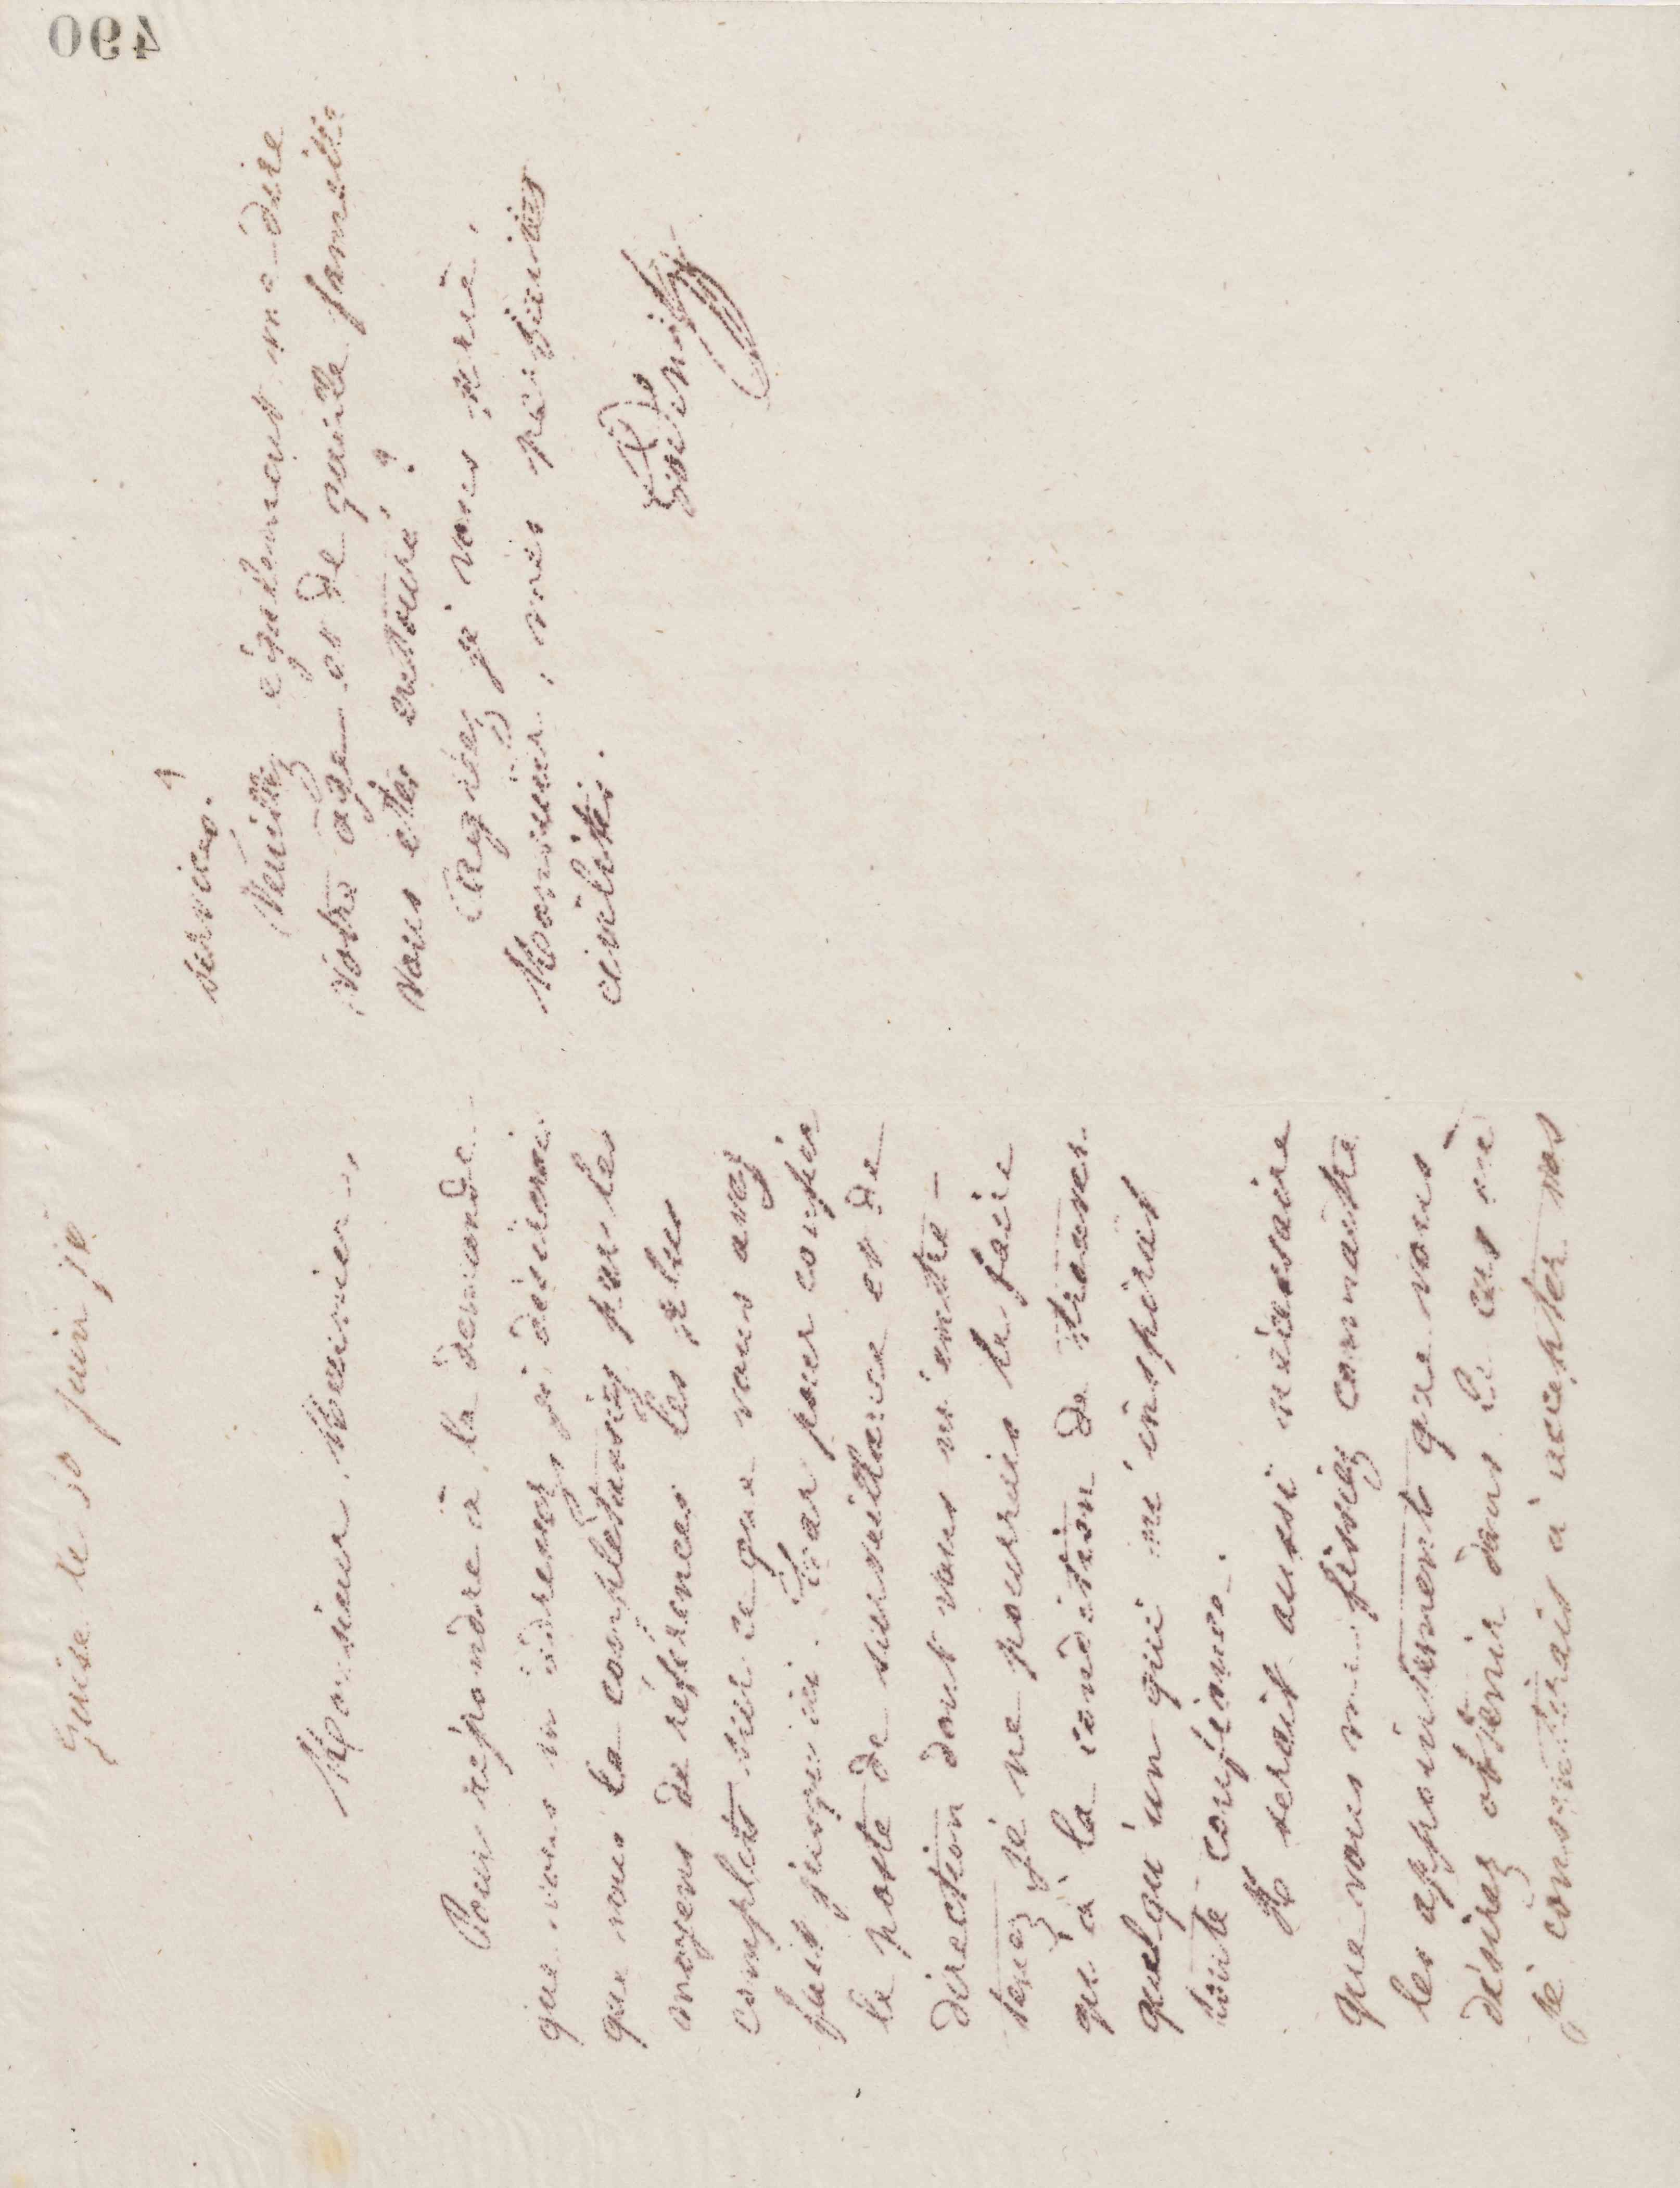 490
Guise le 30 juin 70
Monsieur Meunier,
Pour répondre à la demande
que vous m'adressez je désirerai
que vous la complétassiez par les
moyens de références les plus
complets sur ce que vous avez
fait jusqu'ici. Car pour confier
le poste de surveillance et de
direction dont vous m'entre-
tenez je ne pourrais le faire
qu'à la condition de trouver
quelqu'un qui m'inspirât
toute confiance.
Il serait aussi nécessaire
que vous me fissiez connaître
les appointements que vous
désirez obtenir dans le cas où
je consentirais à accepter vos
services.
Veuillez également me dire
votre âge et de quelle famille
vous êtes entouré?
Agréez je vous prie,
Monsieur, mes parfaites
civilités.
Godin